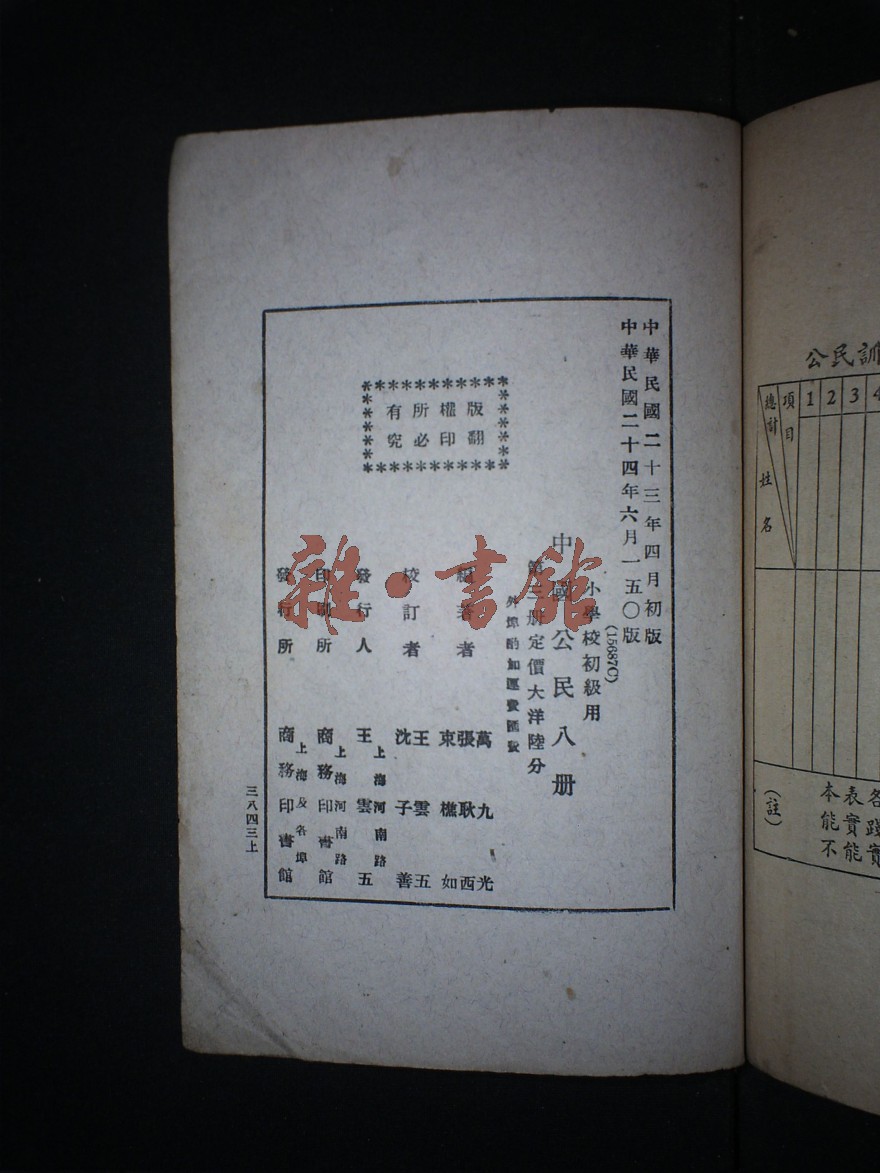 中華民國二十三年四月初版
中華民國二十四年六月一五〇版
(15687C)
小學校初級用
中國公民八册
第三册定價大洋陸分
外埠酌加運費匯費
版權所有
翻印必究
編著者
萬九光
張耿西
束樵如
校訂者
王雲五
沈子善
發行人
上海河南路
王雲五
印刷所
上海河南路
商務印書館
發行所
上海及各埠
商務印書館
三八四三上
雜·書館
公民訓
項目
總計
姓名
1 2 3 4
各踐實
表實能
本能不
(註)